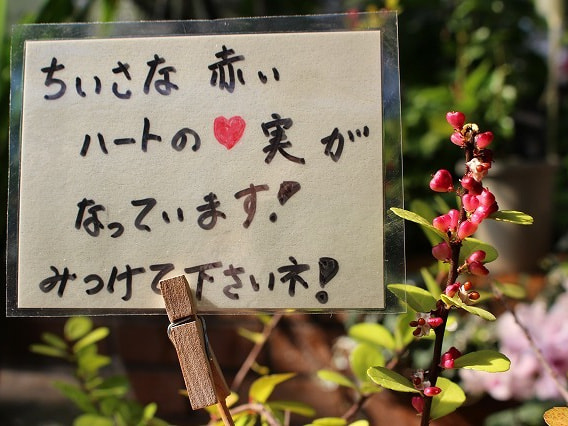 ちいさな 赤い
ハートの♥実が
なっています!
みつけて下さいネ!